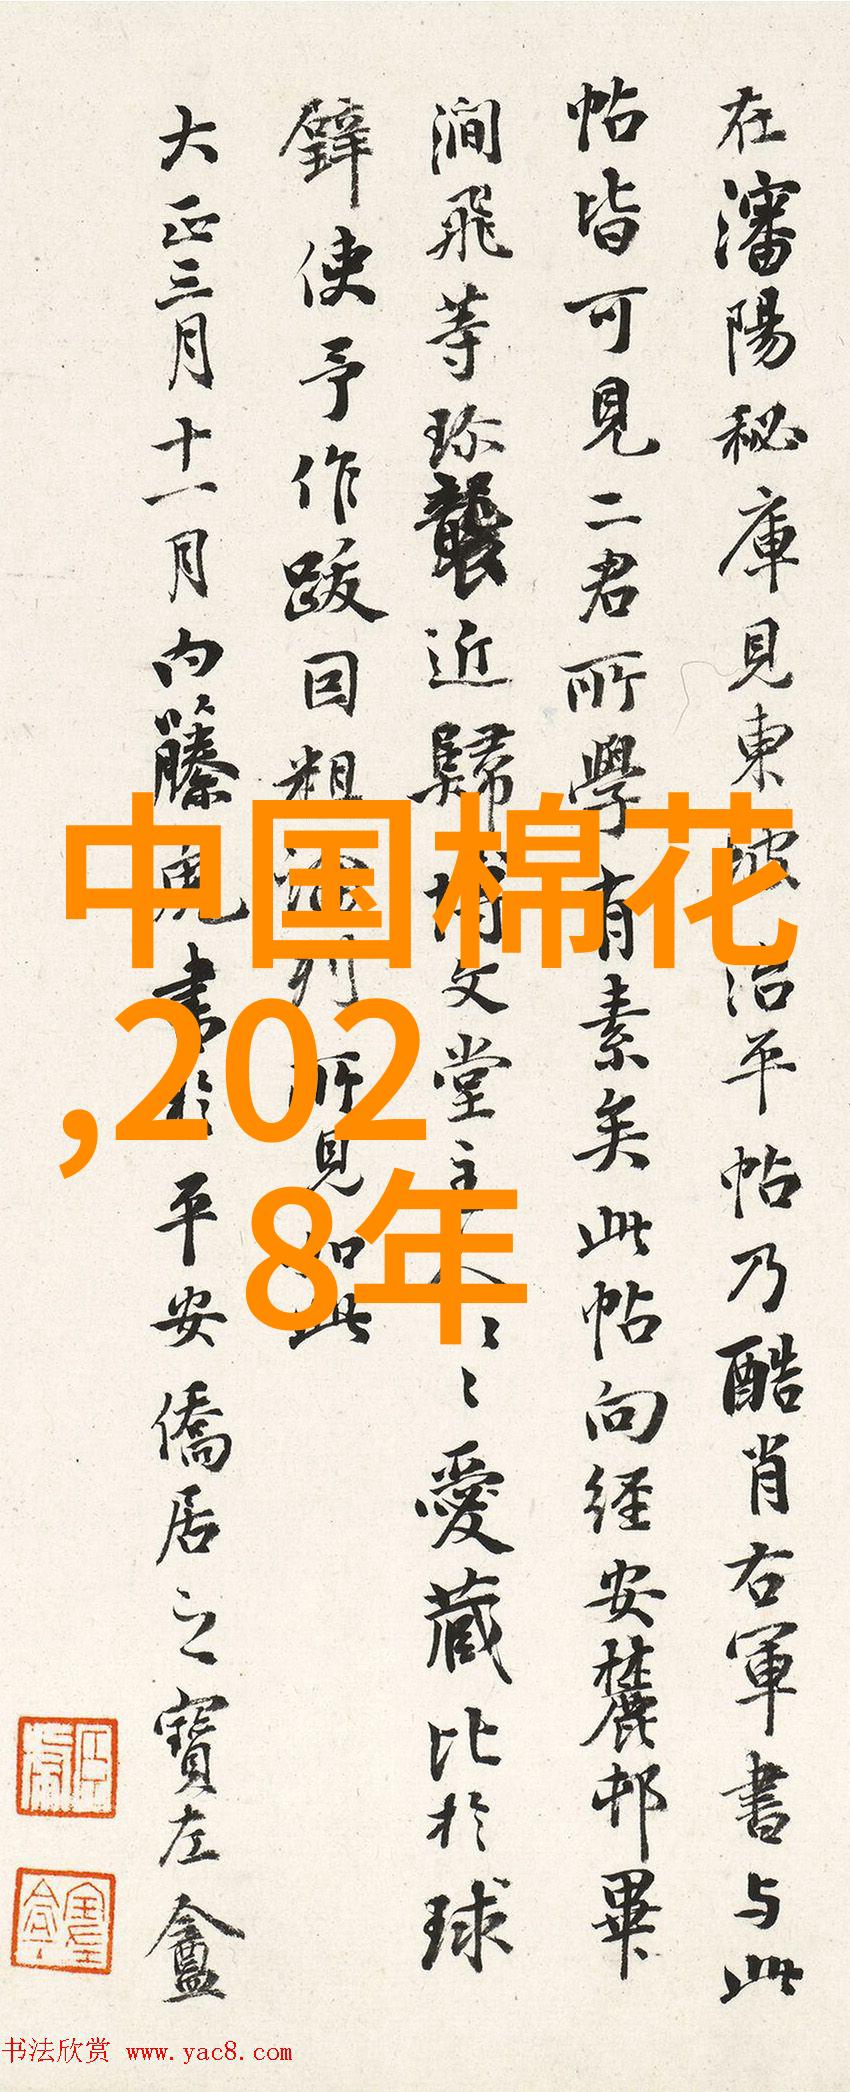 在瀋陽秘庫見東坡治平帖乃酷肖右軍書与此
帖皆可見二君所學有素矣此帖向経安麓邨畢
澗飛等珎襲近歸博文堂主人〻〻愛蔵比於球
璧使予作跋因粗論列所見如此
大正三月十一月内藤虎書於平安僑居之寶左盦
中国棉花
,202
8年
书法欣赏 www.yac8.com